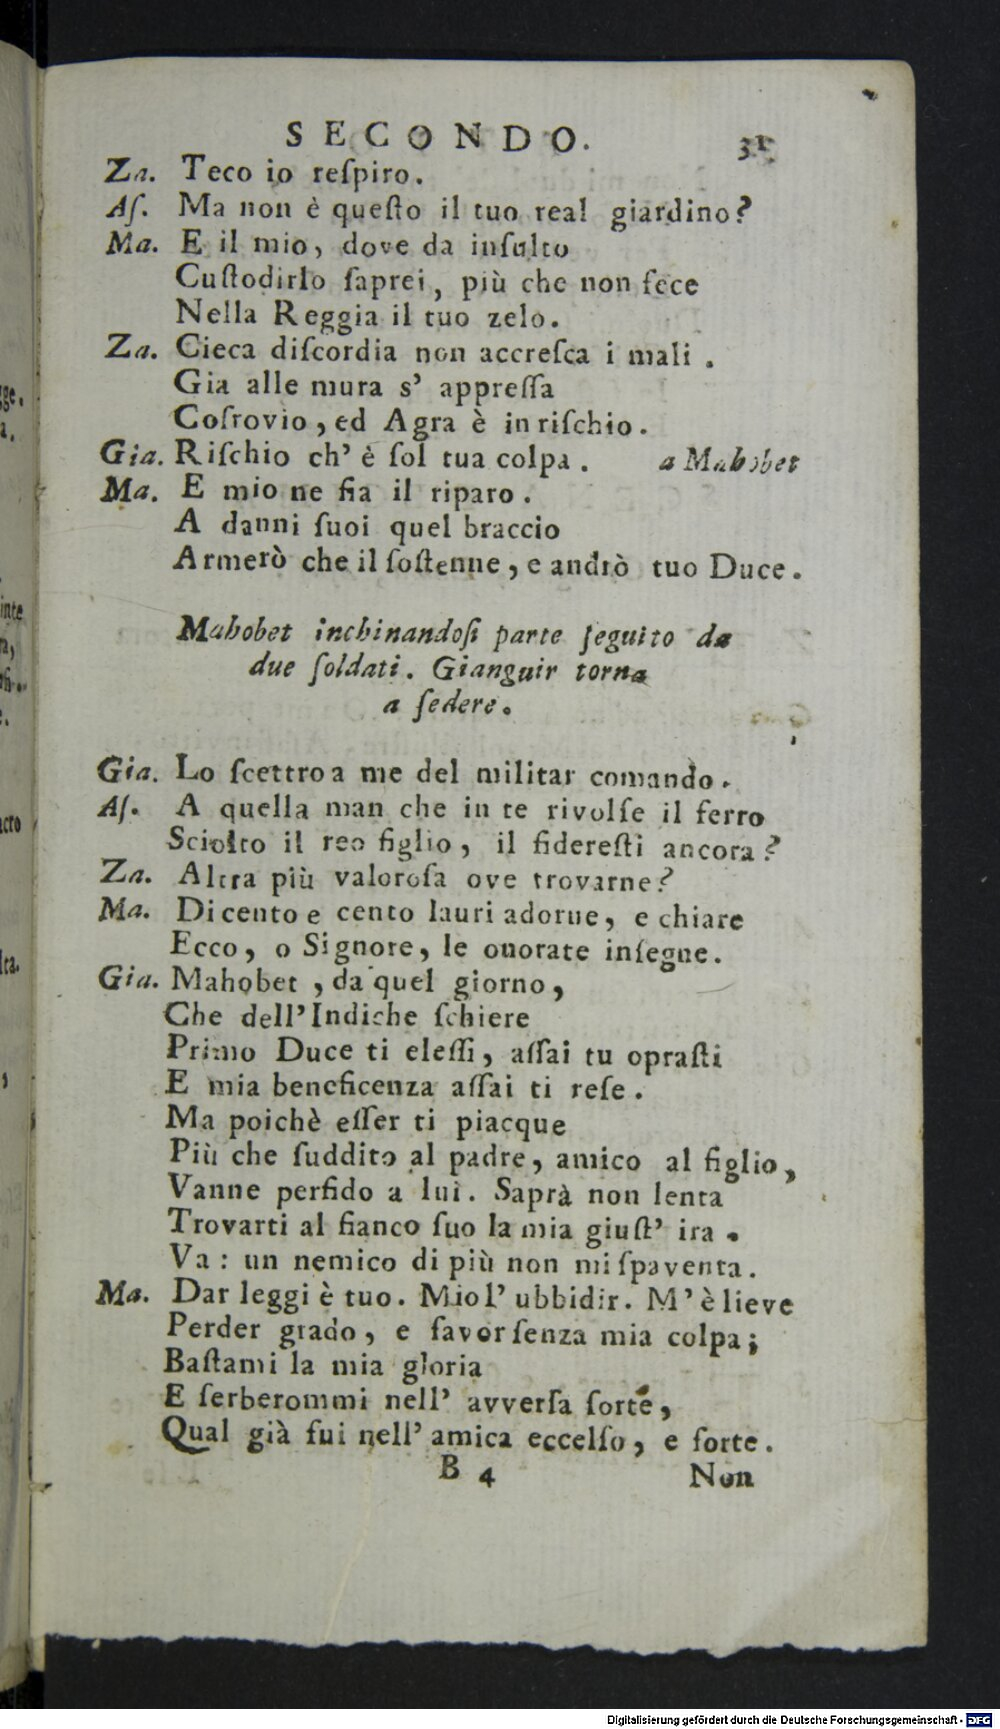 SECONDO. 31
Za. Teco io reſpiro.
Aſ. Ma non è queſto il tuo real giardino?
Ma. E il mio, dove da inſulto
Cuſtodirlo ſaprei, più che non fece
Nella Reggia il tuo zelo.
Za. Cieca diſcordia non accreſca i mali.
Gia alle mura s' appreſſa
Coſrovio, ed Agra è in riſchio.
Gia. Riſchio ch' è ſol tua colpa. a Mahobet
Ma. E mio ne fia il riparo.
A danni ſuoi quel braccio
Armerò che il ſoſtenne, e andrò tuo Duce.
Mahobet inchinandoſi parte ſeguito da
due ſoldati. Gianguir torna
a ſedere.
Gia. Lo ſcettro a me del militar comando.
Aſ. A quella man che in te rivolſe il ferro
Sciolto il reo figlio, il fidereſti ancora?
Za. Altra più valoroſa ove trovarne?
Ma. Di cento e cento lauri adorne, e chiare
Ecco, o Signore, le onorate inſegne.
Gia. Mahobet, da quel giorno,
Che dell' Indiche ſchiere
Primo Duce ti eleſſi, aſſai tu opraſti
E mia beneficenza aſſai ti reſe.
Ma poichè eſſer ti piacque
Più che ſuddito al padre, amico al figlio,
Vanne perfido a lui. Saprà non lenta
Trovarti al fianco ſuo la mia giuſt' ira.
Va: un nemico di più non mi ſpaventa.
Ma. Dar leggi è tuo. Mio l' ubbidir. M' è lieve
Perder grado, e favor ſenza mia colpa;
Baſtami la mia gloria
E ſerberommi nell' avverſa ſorte,
Qual già fui nell' amica eccelſo, e forte.
B 4 Non
Digitalisierung gefördert durch die Deutsche Forschungsgemeinschaft - DFG